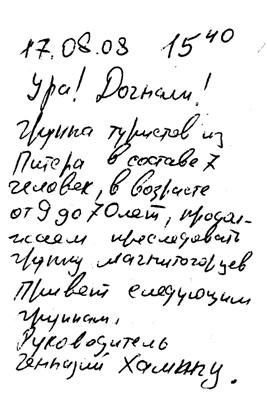 17.08.08 15⁴⁰
Ура! Догнали!
Группа туристов из
Питера в составе 7
человек, в возрасте
от 9 до 70 лет, продол-
жаем преследовать
группу магнитогорцев
Привет следующим
группам.
Руководитель
Геннадий